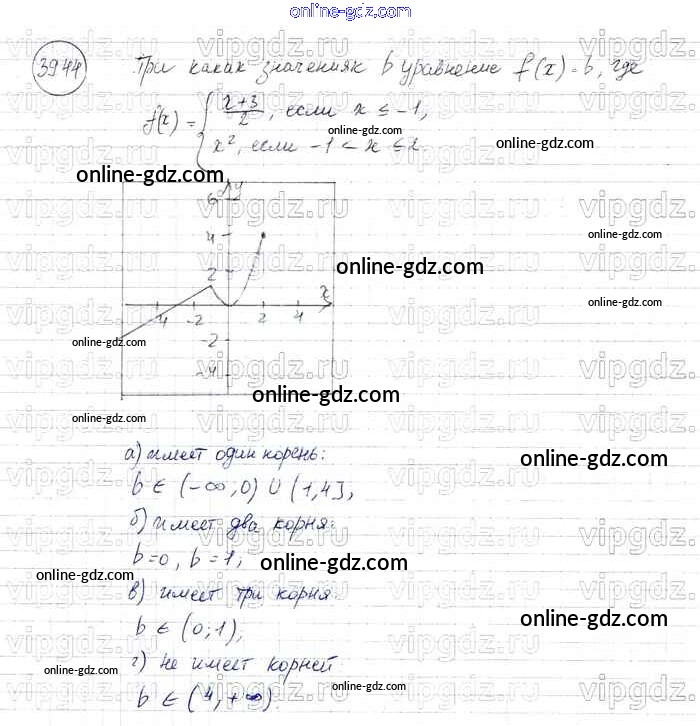 online-gdz.com
39.44 При каких значениях b уравнение f(x)=b, где
f(x) = { (x+3)/2, если x ≤ -1,
x², если -1 < x ≤ 2.
online-gdz.com
online-gdz.com
y
6
4
online-gdz.com
2
online-gdz.com
x
-4 -2 2 4
online-gdz.com
-2
online-gdz.com
-4
online-gdz.com
online-gdz.com
а) имеет один корень:
online-gdz.com
b ∈ (-∞,0) ∪ (1,4],
б) имеет два корня:
b=0, b=1;
online-gdz.com
online-gdz.com
в) имеет три корня:
online-gdz.com
b ∈ (0;1),
г) не имеет корней
online-gdz.com
online-gdz.com
b ∈ (4,+∞)